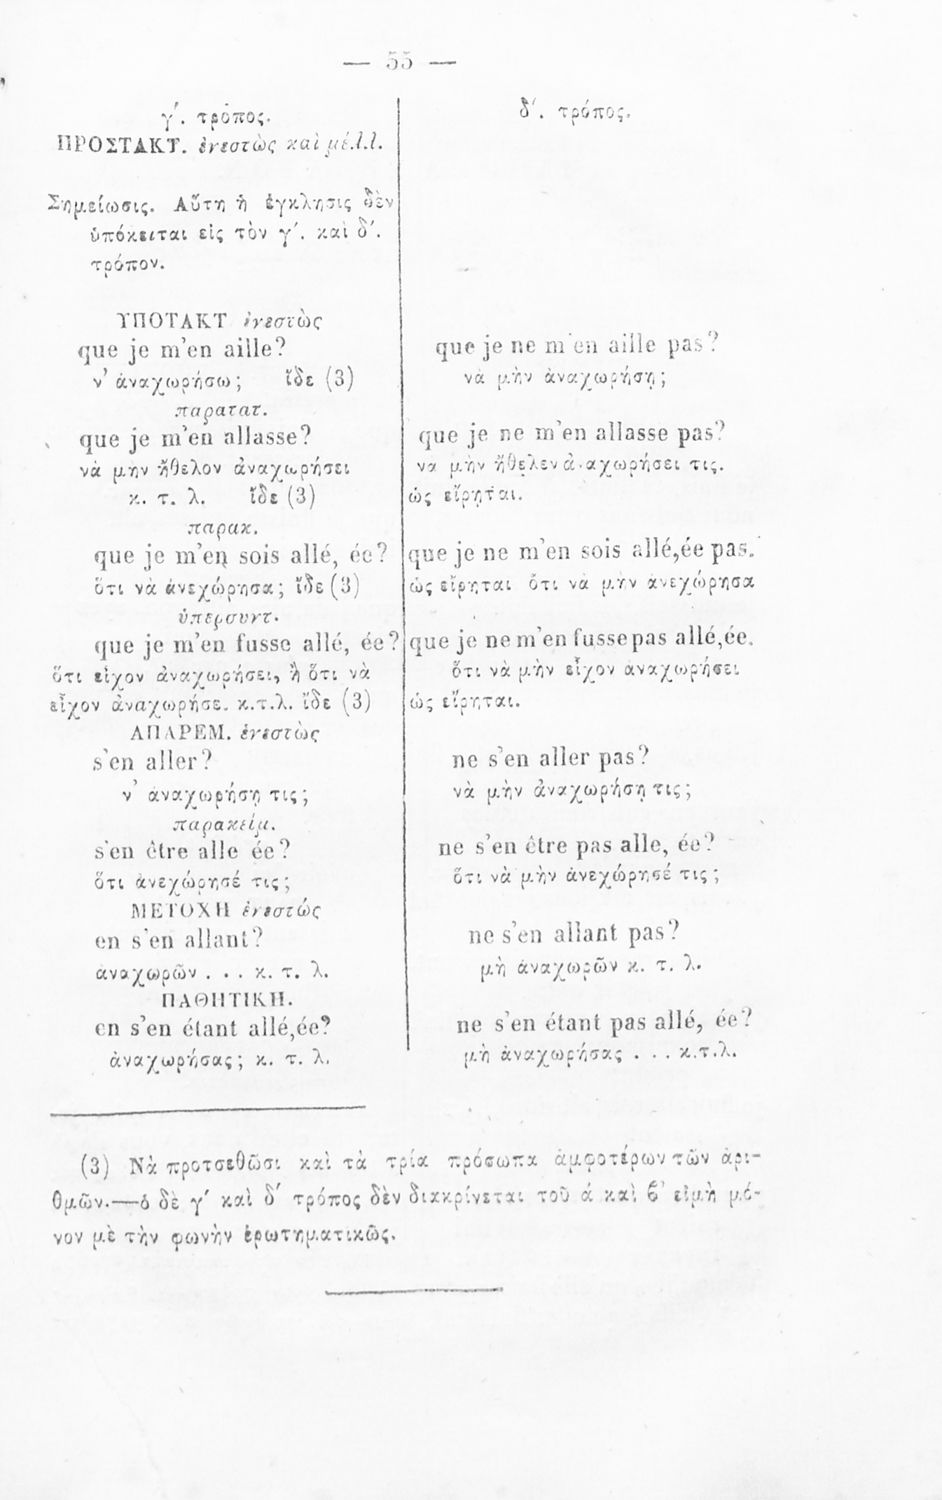 — 55 —
γ΄. τρόπος.
ΠΡΟΣΤΑΚΤ. ἐνεστὼς καὶ μέλλ.
Σημείωσις. Αὕτη ἡ ἔγκλησις δὲν
ὑπόκειται εἰς τὸν γ΄. καὶ δ΄.
τρόπον.
ΥΠΟΤΑΚΤ ἐνεστὼς
que je m'en aille?
ν' ἀναχωρήσω; ἴδε (3)
παρατατ.
que je m'en allasse?
νὰ μὴν ἤθελον ἀναχωρήσει
κ. τ. λ. ἴδε (3)
παρακ.
que je m'en sois allé, ée?
ὅτι νὰ ἀνεχώρησα; ἴδε (3)
ὑπερσυντ.
que je m'en fusse allé, ée?
ὅτι εἶχον ἀναχωρήσει, ἢ ὅτι νὰ
εἶχον ἀναχωρήσε. κ.τ.λ. ἴδε (3)
ΑΠΑΡΕΜ. ἐνεστὼς
s'en aller?
ν' ἀναχωρήσῃ τις;
παρακείμ.
s'en être alle ée?
ὅτι ἀνεχώρησέ τις;
ΜΕΤΟΧΗ ἐνεστώς
en s'en allant?
ἀναχωρῶν . . . κ. τ. λ.
ΠΑΘΗΤΙΚΗ.
en s'en étant allé,ée?
ἀναχωρήσας; κ. τ. λ.
δ΄. τρόπος.
que je ne m'en aille pas?
νὰ μὴν ἀναχωρήσῃ;
que je ne m'en allasse pas?
να μὴν ἤθελεν ἀναχωρήσει τις.
ὡς εἴρηται.
que je ne m'en sois allé,ée pas.
ὡς εἴρηται ὅτι νὰ μὴν ἀνεχώρησα
que je ne m'en fusse pas allé,ée.
ὅτι νὰ μὴν εἶχον ἀναχωρήσει
ὡς εἴρηται.
ne s'en aller pas?
νὰ μὴν ἀναχωρήσῃ τις;
ne s'en être pas alle, ée?
ὅτι νὰ μὴν ἀνεχώρησέ τις;
ne s'en allant pas?
μὴ ἀναχωρῶν κ. τ. λ.
ne s'en étant pas allé, ée?
μὴ ἀναχωρήσας . . . κ.τ.λ.
(3) Νὰ προτσεθῶσι καὶ τὰ τρία πρόσωπα ἀμφοτέρων τῶν ἀρι-
θμῶν.—ὁ δὲ γ΄ καὶ δ΄ τρόπος δὲν διακρίνεται τοῦ ά καὶ ϐ΄ εἰμὴ μό-
νον μὲ τὴν φωνὴν ἐρωτηματικῶς.